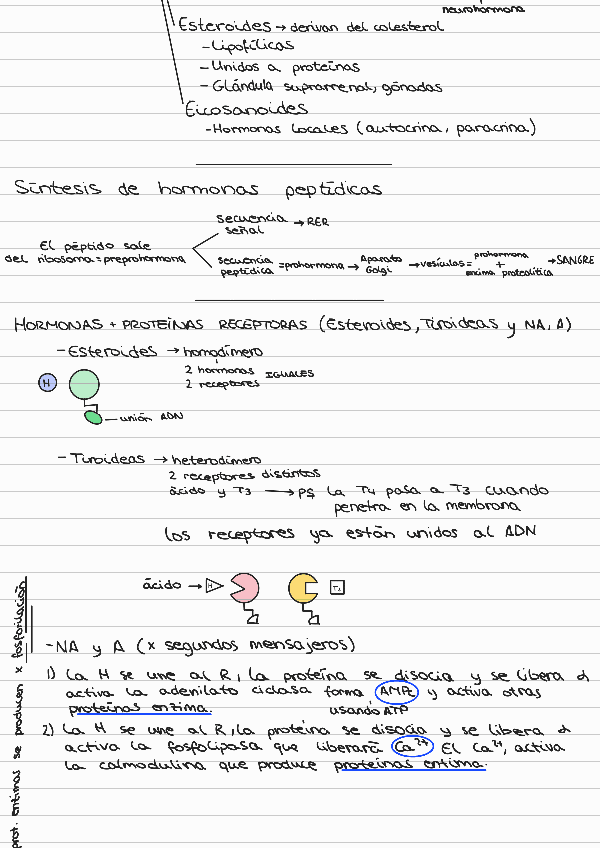 neurohormona
Esteroides → derivan del colesterol
- Lipofílicas
- Unidos a proteínas
- Glándula suprarrenal, gónadas
Eicosanoides
- Hormonas locales (autocrina, paracrina)
Síntesis de hormonas peptídicas
El péptido sale
del ribosoma = preprohormona
secuencia → RER
señal
secuencia = prohormona → Aparato → vesículas = prohormona → SANGRE
peptídica Golgi +
enzima proteolítica
HORMONAS + PROTEÍNAS RECEPTORAS (Esteroides, Tiroideas y NA, A)
- Esteroides → homodímero
2 hormonas IGUALES
2 receptores
H
unión ADN
- Tiroideas → heterodímero
2 receptores distintos
ácido y T3 → PS la T4 pasa a T3 cuando
penetra en la membrana
los receptores ya están unidos al ADN
ácido → H
T3
- NA y A (x segundos mensajeros)
1) La H se une al R, la proteína se disocia y se libera α
activa la adenilato ciclasa forma AMPc y activa otras
proteínas enzima. usando ATP
2) La H se une al R, la proteína se disocia y se libera α
activa la fosfolipasa que liberará Ca2+ El Ca2+, activa
la calmodulina que produce proteínas enzima.
prot. enzimas se producen x fosforilación